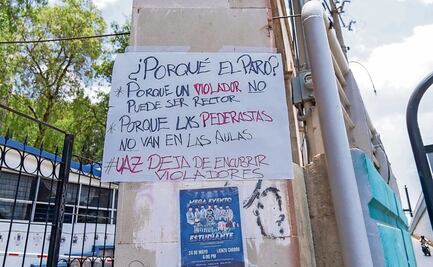 ¿PORQUÉ EL PARO?
* PORQUE UN VIOLADOR NO
PUEDE SER RECTOR
* PORQUE LXS PEDERASTAS
NO VAN EN LAS AULAS
#UAZ DEJA DE ENCUBRIR
VIOLADORES
MEGA EVENTO
ESTUDIANTE
24 DE MAYO
LIENZO CHARRO
6:00 PM